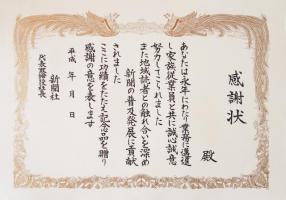 感謝状
殿
あなたは永年にわたり業務に邁進
し家族従業員と共に誠心誠意
努力してこられました
また地域読者との触れ合いを深め
新聞の普及発展に貢献
されました
ここに功績をたたえ記念品を贈り
感謝の意を表します
平成　年　月　日
新聞社
代表取締役社長